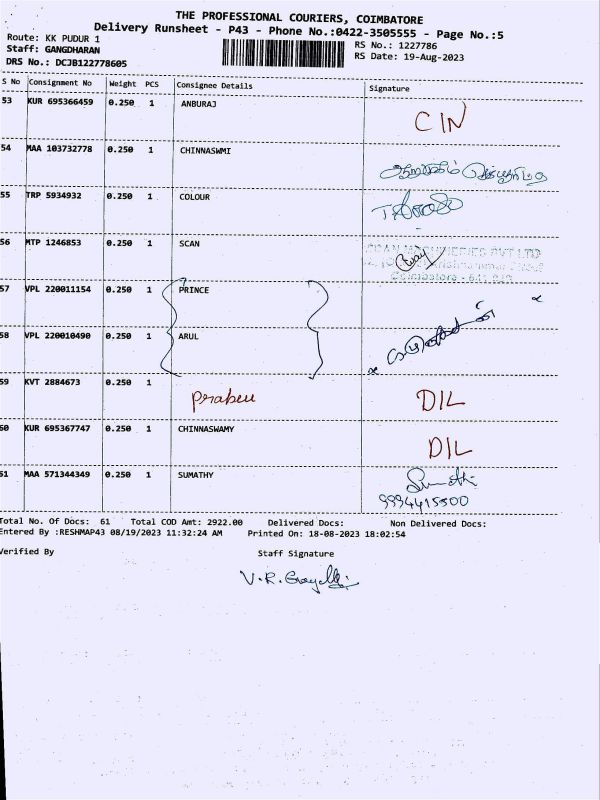 THE PROFESSIONAL COURIERS, COIMBATORE
Delivery Runsheet - P43 - Phone No.:0422-3505555 - Page No.:5
Route: KK PUDUR 1 RS No.: 1227786
Staff: GANGDHARAN RS Date: 19-Aug-2023
DRS No.: DCJB122778605
S No Consignment No Weight PCS Consignee Details Signature
53 KUR 695366459 0.250 1 ANBURAJ CIN
54 MAA 103732778 0.250 1 CHINNASWMI
55 TRP 5934932 0.250 1 COLOUR
56 MTP 1246853 0.250 1 SCAN
Coimbatore - 641
57 VPL 220011154 0.250 1 PRINCE
58 VPL 220010490 0.250 1 ARUL
59 KVT 2884673 0.250 1 Prabeu DIL
60 KUR 695367747 0.250 1 CHINNASWAMY DIL
61 MAA 571344349 0.250 1 SUMATHY
9994415500
Total No. Of Docs: 61 Total COD Amt: 2922.00 Delivered Docs: Non Delivered Docs:
Entered By :RESHMAP43 08/19/2023 11:32:24 AM Printed On: 18-08-2023 18:02:54
Verified By Staff Signature